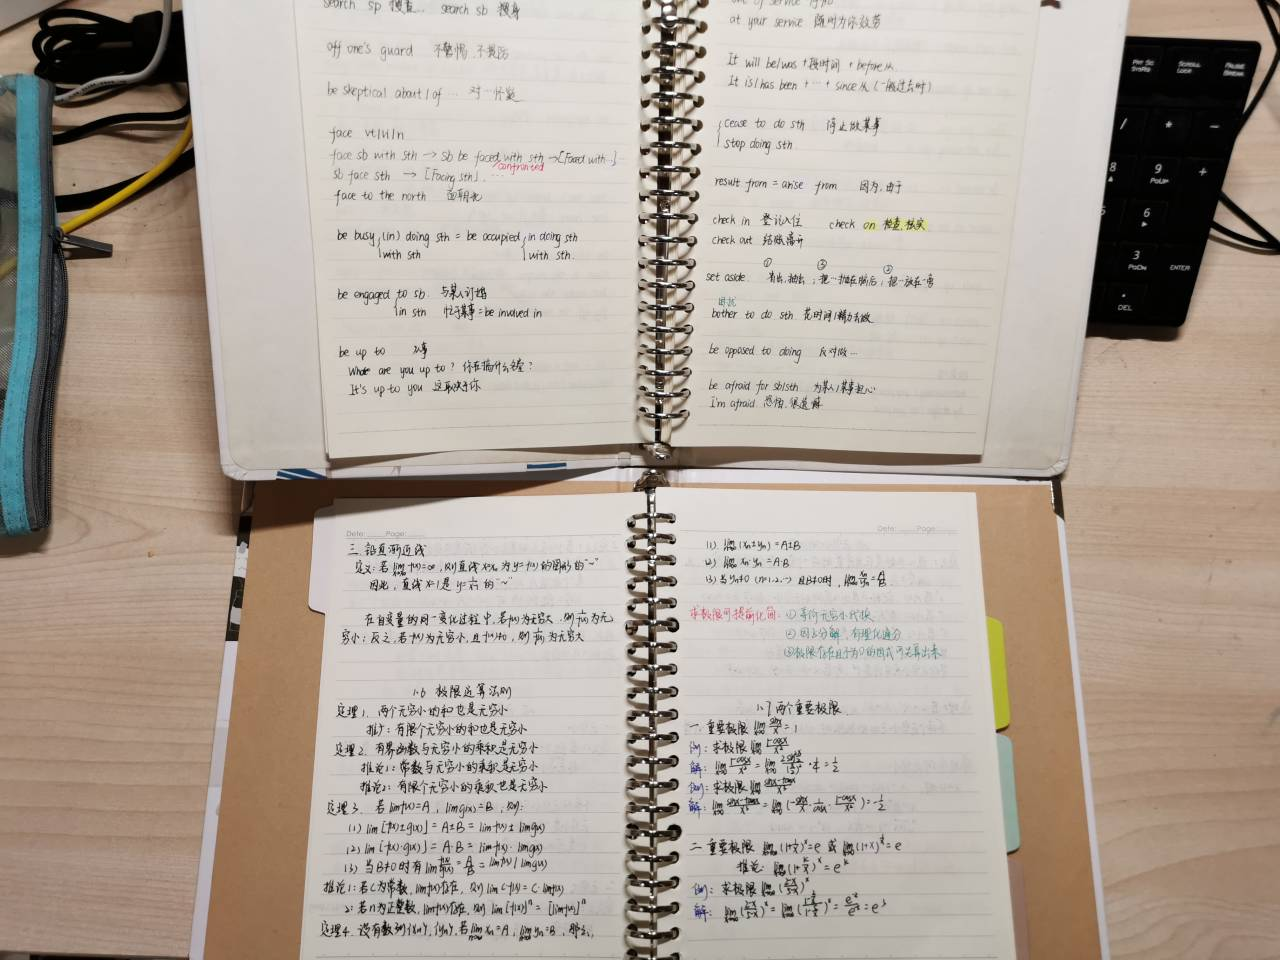 search sp 搜查... search sb 搜身
off one's guard 不警惕,不提防
be skeptical about / of … 对…怀疑
face vt/vi/n
face sb with sth → sb be faced with sth → [Faced with…]…
confronted
sb face sth → [Facing sth]. …
face to the north 面朝北
be busy (in) doing sth = be occupied in doing sth
with sth with sth.
be engaged to sb 与某人订婚
in sth 忙于某事 = be involved in
be up to 从事
What are you up to? 你在搞什么名堂?
It's up to you 这取决于你
out of service 停
at your service 随时为你效劳
It will be/was + 段时间 + before从.
It is/has been + … + since从 (一般过去时)
cease to do sth 停止做某事
stop doing sth
result from = arise from 因为,由于
check in 登记入住 check on 检查,核实
check out 结账离开
① ③ ②
set aside. 省出,抽出;把…抛在脑后;把…放在一旁
困扰
bother to do sth 花时间/精力去做
be opposed to doing 反对做…
be afraid for sb/sth 为某人/某事担心
I'm afraid. 恐怕,很遗憾
Date: Page:
三. 铅直渐近线
定义:若lim f(x)=∞,则直线x=x₀为y=f(x)的图形的"~"
因此,直线x=1是y=的"~"
在自变量的同一变化过程中,若f(x)为无穷大,则1/f(x)为无
穷小;反之,若f(x)为无穷小,且f(x)≠0,则1/f(x)为无穷大
1.6 极限运算法则
定理1. 两个无穷小的和也是无穷小
推广:有限个无穷小的和也是无穷小
定理2. 有界函数与无穷小的乘积是无穷小
推论1:常数与无穷小的乘积是无穷小
推论2:有限个无穷小的乘积也是无穷小
定理3. 若limf(x)=A,limg(x)=B,则:
(1) lim[f(x)±g(x)]=A±B=limf(x)±limg(x)
(2) lim[f(x)·g(x)]=A·B=limf(x)·limg(x)
(3) 当B≠0时有lim f(x)/g(x)=A/B=limf(x)/limg(x)
推论1:若C为常数,limf(x)存在,则lim C·f(x)=C·limf(x)
2:若n为正整数,limf(x)存在,则lim[f(x)]ⁿ=[limf(x)]ⁿ
定理4. 设有数列{xn},{yn},若lim xn=A,lim yn=B,那么,
Date: Page:
(1) lim(xn±yn)=A±B
(2) lim xn·yn=A·B
(3) 当yn≠0 (n=1,2,…) 且B≠0时,lim xn/yn=A/B
求极限可提前化简:①等价无穷小代换
②因式分解,有理化通分
③极限存在且不为0的因式可先算出来
1.7 两个重要极限.
一.重要极限lim sinx/x=1
例:求极限lim (1-cosx)/x²
解:lim (1-cosx)/x² = = 1/2
例:求极限lim (sinx-tanx)/x³
解:lim (sinx-tanx)/x³ = lim(-sinx/x · 1/cosx · (1-cosx)/x²)=-1/2
二.重要极限 lim(1+1/x)ˣ=e 或 lim(1+x)^(1/x)=e
推论:lim(1+k/x)ˣ=eᵏ
例:求极限lim
解: